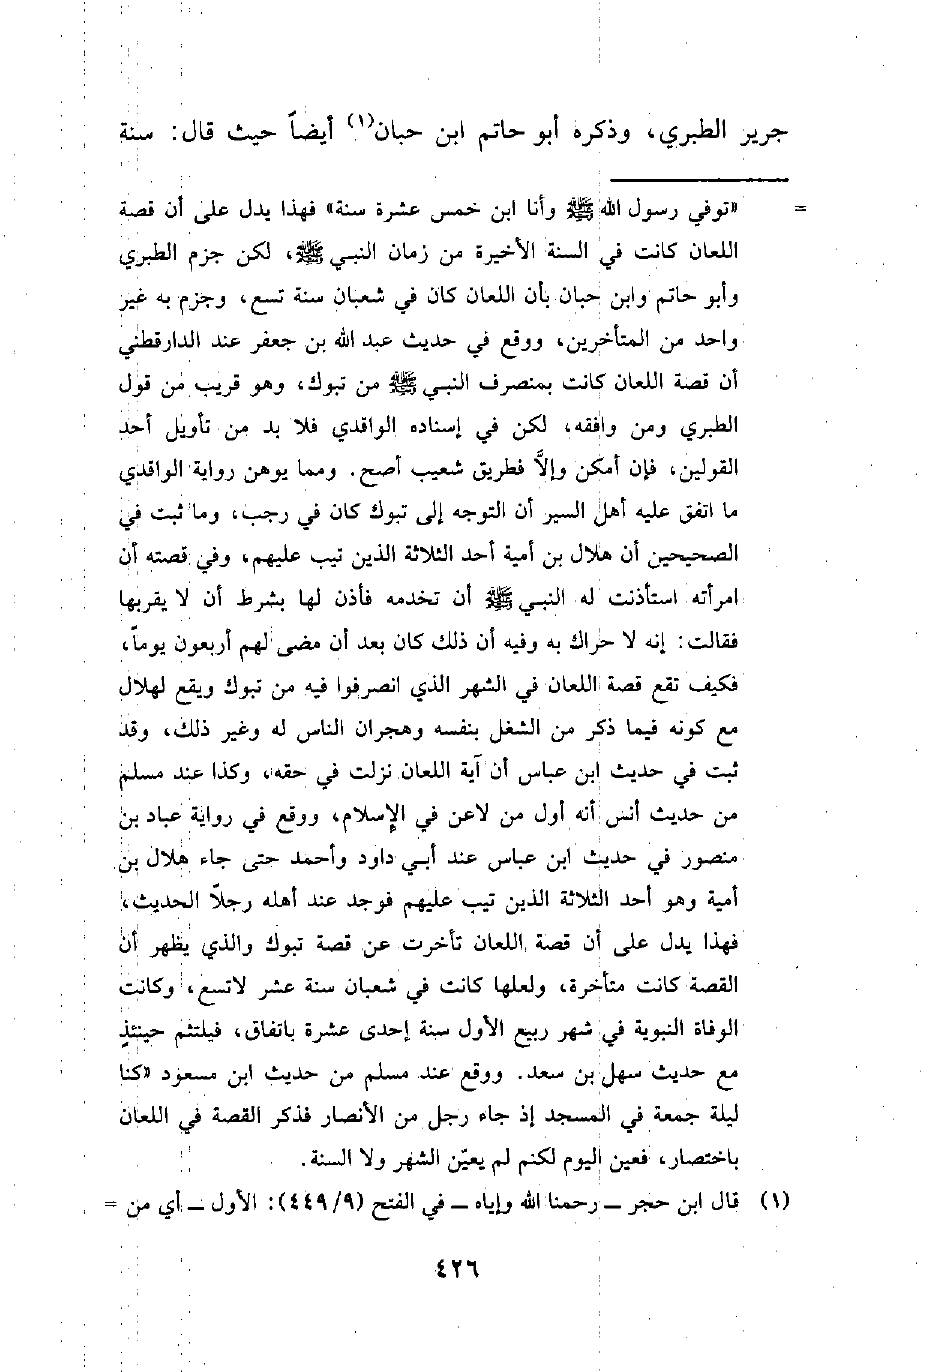 جرير الطبري، وذكره أبو حاتم ابن حبان(١) أيضاً حيث قال: سنة
= «توفي رسول الله ﷺ وأنا ابن خمس عشرة سنة» فهذا يدل على أن قصة
اللعان كانت في السنة الأخيرة من زمان النبي ﷺ، لكن جزم الطبري
وأبو حاتم وابن حبان بأن اللعان كان في شعبان سنة تسع، وجزم به غير
واحد من المتأخرين، ووقع في حديث عبد الله بن جعفر عند الدارقطني
أن قصة اللعان كانت بمنصرف النبي ﷺ من تبوك، وهو قريب من قول
الطبري ومن وافقه، لكن في إسناده الواقدي فلا بد من تأويل أحد
القولين، فإن أمكن وإلاَّ فطريق شعيب أصح. ومما يوهن رواية الواقدي
ما اتفق عليه أهل السير أن التوجه إلى تبوك كان في رجب، وما ثبت في
الصحيحين أن هلال بن أمية أحد الثلاثة الذين تيب عليهم، وفي قصته أن
امرأته استأذنت له النبي ﷺ أن تخدمه فأذن لها بشرط أن لا يقربها
فقالت: إنه لا حراك به وفيه أن ذلك كان بعد أن مضى لهم أربعون يوماً،
فكيف تقع قصة اللعان في الشهر الذي انصرفوا فيه من تبوك ويقع لهلال
مع كونه فيما ذكر من الشغل بنفسه وهجران الناس له وغير ذلك، وقد
ثبت في حديث ابن عباس أن آية اللعان نزلت في حقه، وكذا عند مسلم
من حديث أنس أنه أول من لاعن في الإسلام، ووقع في رواية عباد بن
منصور في حديث ابن عباس عند أبي داود وأحمد حتى جاء هلال بن
أمية وهو أحد الثلاثة الذين تيب عليهم فوجد عند أهله رجلاً الحديث،
فهذا يدل على أن قصة اللعان تأخرت عن قصة تبوك والذي يظهر أن
القصة كانت متأخرة، ولعلها كانت في شعبان سنة عشر لاتسع، وكانت
الوفاة النبوية في شهر ربيع الأول سنة إحدى عشرة باتفاق، فيلتئم حينئذٍ
مع حديث سهل بن سعد. ووقع عند مسلم من حديث ابن مسعود «كنا
ليلة جمعة في المسجد إذ جاء رجل من الأنصار فذكر القصة في اللعان
باختصار، فعين اليوم لكنم لم يعيّن الشهر ولا السنة.
(١) قال ابن حجر ــ رحمنا الله وإياه ــ في الفتح (٤٤٩/٩): الأول ــ أي من =
٤٢٦